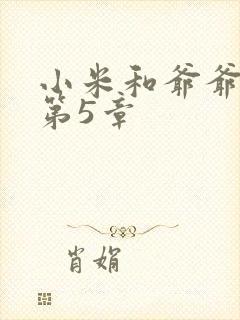 小米和爷爷
第5章
肖娟